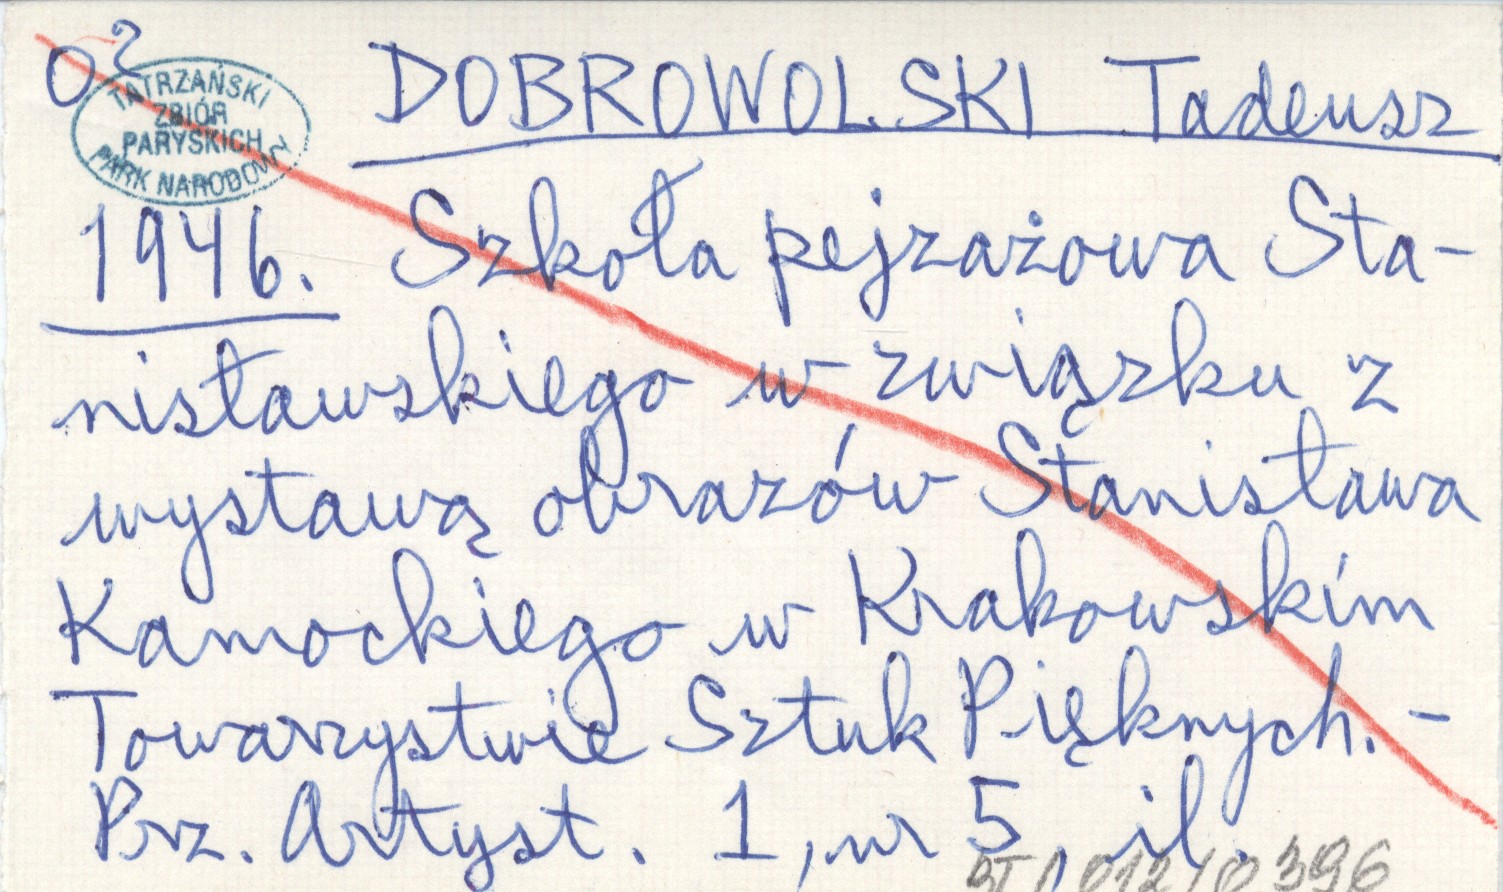 O2
TATRZAŃSKI
ZBIÓR
PARYSKICH
PARK NARODOWY
DOBROWOLSKI Tadeusz
1946. Szkoła pejzażowa Sta-
nisławskiego w związku z
wystawą obrazów Stanisława
Kamockiego w Krakowskim
Towarzystwie Sztuk Pięknych. -
Prz. Artyst. 1, nr 5, il.
BT/012/0396